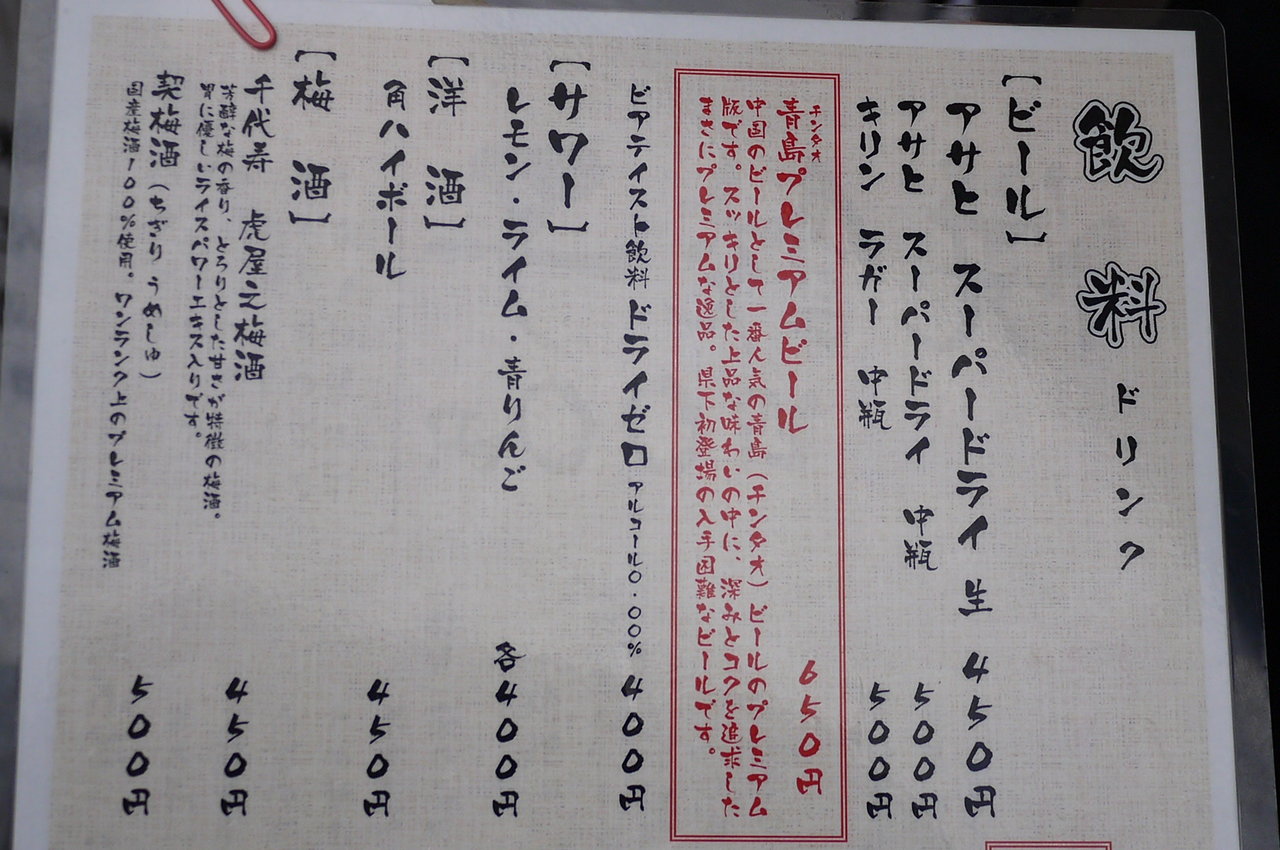 飲料 ドリンク
【ビール】
アサヒ スーパードライ 生 450円
アサヒ スーパードライ 中瓶 500円
キリン ラガー 中瓶 500円
チンタオ
青島プレミアムビール 650円
中国のビールとして一番人気の青島（チンタオ）ビールのプレミアム
版です。スッキリとした上品な味わいの中に、深みとコクを追求した
まさにプレミアムな逸品。県下初登場の入手困難なビールです。
ビアテイスト飲料 ドライゼロ アルコール0.00% 400円
【サワー】
レモン・ライム・青りんご 各400円
【洋 酒】
角ハイボール 450円
【梅 酒】
千代寿 虎屋之梅酒 450円
芳醇な梅の香り、とろりとした甘さが特徴の梅酒。
胃に優しいライスパワーエキス入りです。
契梅酒（ちぎり うめしゅ） 500円
国産梅酒100%使用。ワンランク上のプレミアム梅酒